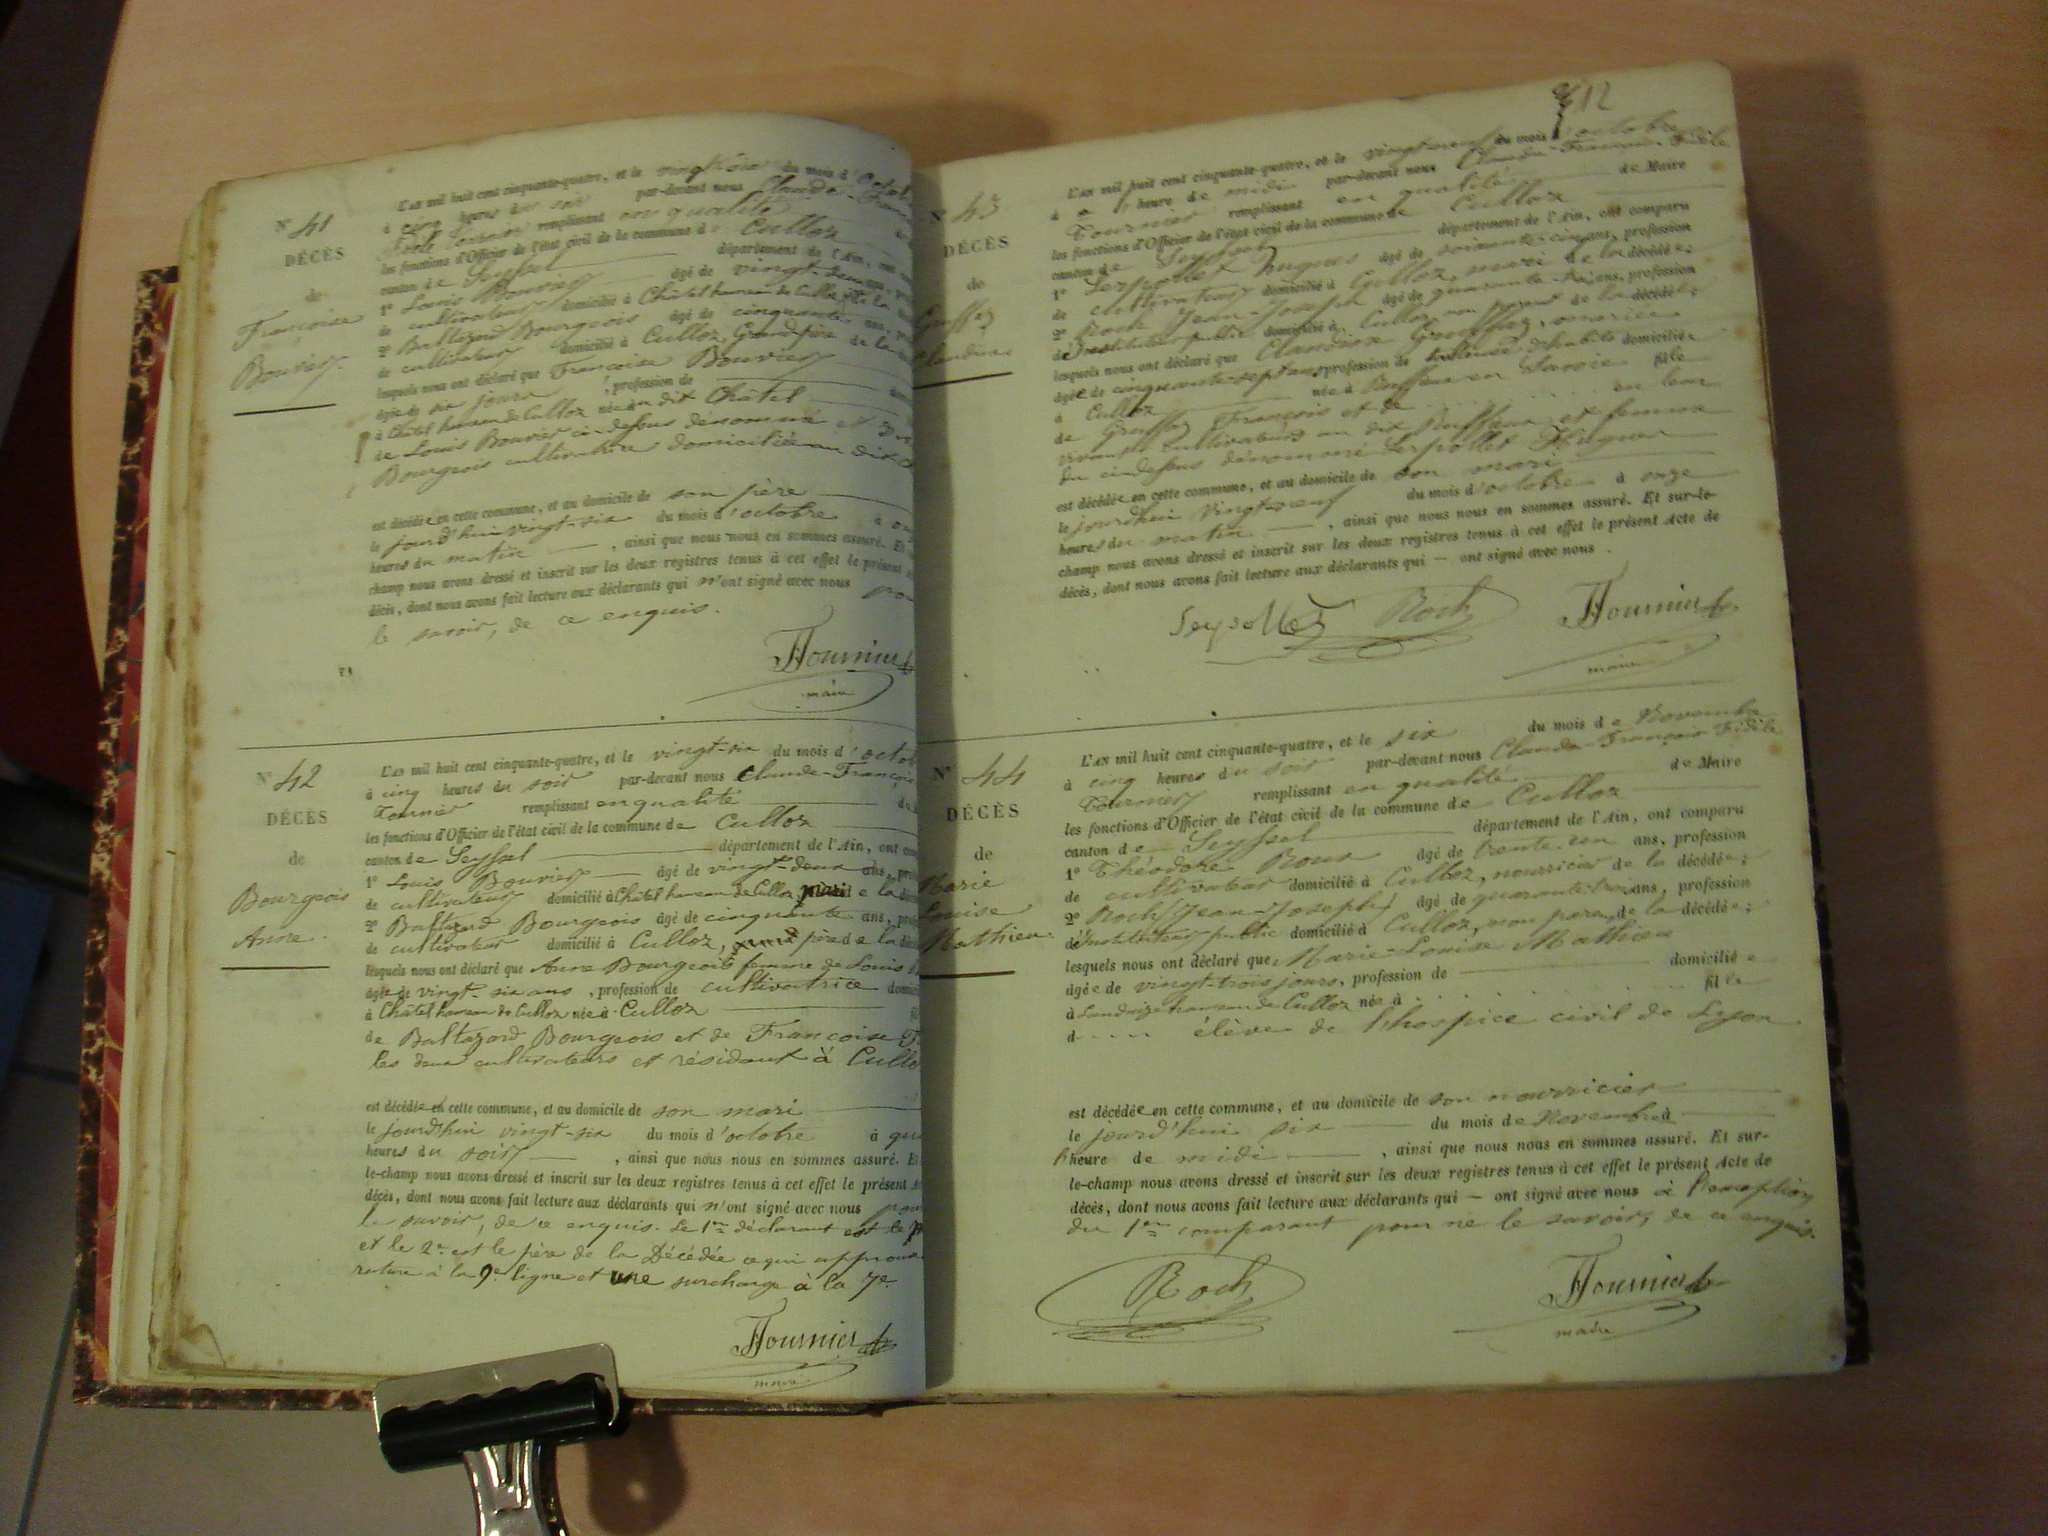 N° 41
DÉCÈS
de
Françoise
Bouvier
L'AN mil huit cent cinquante-quatre, et le vingt-six du mois d'
à cinq heures du soir par-devant nous Claude-
remplissant en qualité
les fonctions d'Officier de l'état civil de la commune de Culloz
canton de Seyssel département de l'Ain, ont
1° Louis Bouvier âgé de vingt-deux
de cultivateur domicilié à Châtel hameau de Culloz
2° Baltazard Bourgeois âgé de cinquante ans,
de cultivateur domicilié à Culloz, Grand père de la
lesquels nous ont déclaré que Françoise Bouvier
âgée de six jours, profession de
à Châtel hameau de Culloz née au dit Châtel
de Louis Bouvier ci-dessus dénommé et
Bourgeois cultivatrice domiciliée au dit
est décédée en cette commune, et au domicile de son père
le jourd'hui vingt-six du mois d'octobre à
heures du matin, ainsi que nous nous en sommes assuré. Et
champ nous avons dressé et inscrit sur les deux registres tenus à cet effet le présent
décès, dont nous avons fait lecture aux déclarants qui n'ont signé avec nous
le savoir, de ce enquis.
Fournier
maire
N° 42
DÉCÈS
de
Bourgeois
Anne
L'AN mil huit cent cinquante-quatre, et le vingt-six du mois d'
à cinq heures du soir par-devant nous Claude-François
Fournier remplissant en qualité
les fonctions d'Officier de l'état civil de la commune de Culloz
canton de Seyssel département de l'Ain, ont
1° Louis Bouvier âgé de vingt-deux ans,
de cultivateur domicilié à Châtel hameau de Culloz, mari de la
2° Baltazard Bourgeois âgé de cinquante ans,
de cultivateur domicilié à Culloz, père de la
lesquels nous ont déclaré que Anne Bourgeois femme de Louis
âgée de vingt-six ans, profession de cultivatrice
à Châtel hameau de Culloz née à Culloz
de Baltazard Bourgeois et de Françoise
les deux cultivateurs et résidant à
est décédée en cette commune, et au domicile de son mari
le jourd'hui vingt-six du mois d'octobre à
heures du soir, ainsi que nous nous en sommes assuré. Et
le-champ nous avons dressé et inscrit sur les deux registres tenus à cet effet le présent
décès, dont nous avons fait lecture aux déclarants qui n'ont signé avec nous
le savoir, de ce enquis. Le 1er déclarant est le
et le 2e est le père de la Décédée ce qui approuve
rature à la 9e ligne et une surcharge à la 7e
Fournier
maire
12
N° 43
DÉCÈS
de
L'AN mil huit cent cinquante-quatre, et le vingt-neuf du mois d'octobre
à heure de midi par-devant nous Claude-François Fidèle
Fournier remplissant en qualité de Maire
les fonctions d'Officier de l'état civil de la commune de Culloz
canton de Seyssel département de l'Ain, ont comparu
1° Serpollet Hugues âgé de soixante-cinq ans, profession
de cultivateur domicilié à Culloz, mari de la décédée;
2° Roch Jean-Joseph âgé de quarante- ans, profession
d'Instituteur public domicilié à Culloz, non parent de la décédée;
lesquels nous ont déclaré que Claudine Gruffaz, mariée
âgée de cinquante-sept ans, profession de domiciliée
à Culloz née à Ruffieux en Savoie fille
de Gruffaz François et de
vivants cultivateurs au dit Ruffieux et femme
du ci-dessus dénommé Serpollet Hugues
est décédée en cette commune, et au domicile de son mari
le jourd'hui vingt-neuf du mois d'octobre à onze
heures du matin, ainsi que nous nous en sommes assuré. Et sur-le-
champ nous avons dressé et inscrit sur les deux registres tenus à cet effet le présent Acte de
décès, dont nous avons fait lecture aux déclarants qui — ont signé avec nous.
Serpollet Roch Fournier
maire
N° 44
DÉCÈS
de
Marie
Louise
Mathieu
L'AN mil huit cent cinquante-quatre, et le six du mois de Novembre
à cinq heures du soir par-devant nous Claude-François Fidèle
Fournier remplissant en qualité de Maire
les fonctions d'Officier de l'état civil de la commune de Culloz
canton de Seyssel département de l'Ain, ont comparu
1° Théodore Roux âgé de trente-un ans, profession
de cultivateur domicilié à Culloz, nourricier de la décédée;
2° Roch (Jean-Joseph) âgé de quarante-trois ans, profession
d'Instituteur public domicilié à Culloz, non parent de la décédée;
lesquels nous ont déclaré que, Marie-Louise Mathieu
âgée de vingt-trois jours, profession de domiciliée
à Landaize hameau de Culloz née à fille
d élève de l'hospice civil de Lyon
est décédée en cette commune, et au domicile de son nourricier
le jourd'hui six du mois de Novembre à
heure de midi, ainsi que nous nous en sommes assuré. Et sur-
le-champ nous avons dressé et inscrit sur les deux registres tenus à cet effet le présent Acte de
décès, dont nous avons fait lecture aux déclarants qui — ont signé avec nous à l'exception
du 1er comparant pour ne le savoir, de ce enquis.
Roch Fournier
maire